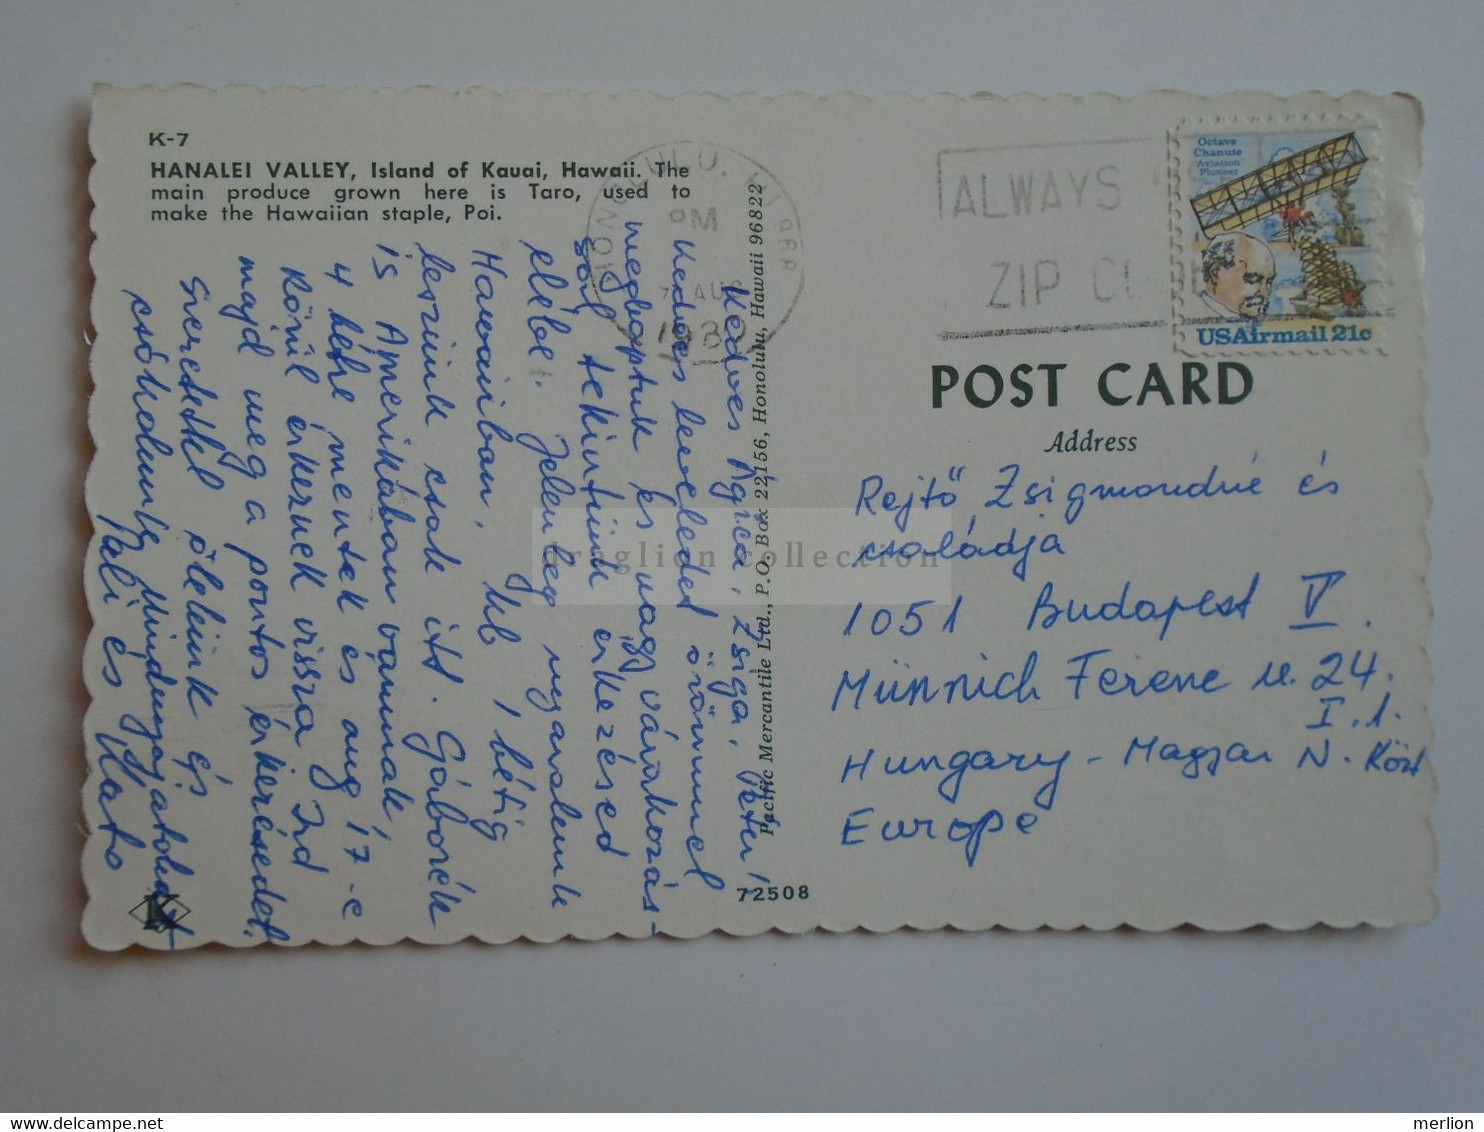 K-7
HANALEI VALLEY, Island of Kauai, Hawaii. The
main produce grown here is Taro, used to
make the Hawaiian staple, Poi.
Kedves Ágica, Zsiga, Peti!
Kedves leveledet örömmel
megkaptuk és nagy várakozás-
sal tekintünk érkezésed
elébe. Jelenleg nyaralunk
Hawaiiban, kb 1 hétig
leszünk csak itt. Gáborék
is Amerikában vannak,
4 hétre mentek és aug 17-e
körül érkeznek vissza. Írd
majd meg a pontos érkezésedet.
Szeretettel ölelünk és
csókolunk Mindnyájatokat
Pali és Kato
K
Pacific Mercantile Ltd., P.O. Box 22156, Honolulu, Hawaii 96822
72508
HONOLULU, HI 968
PM
AUG
ALWAYS
ZIP CODE
Octave
Chanute
Aviation
Pioneer
USAirmail 21c
POST CARD
Address
Rejtő Zsigmondné és
családja
1051 Budapest V.
Münnich Ferenc u. 24.
I.1.
Hungary - Magyar N. Közt
Europe
braglion collection
merlion